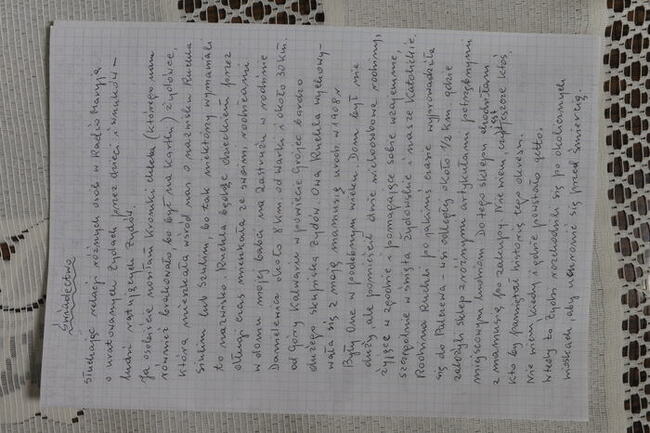 Świadectwo
Słuchając relacji różnych osób w Radio Maryja
o uratowanych Żydach przez dzieci i wnuków –
ludzi ratujących Żydów.
Ja osobiście nosiłam kromki chleba (którego nam
również brakowało bo był na kartki) Żydówce,
która mieszkała wśród nas o nazwisku Ruchla
lub bo tak niektórzy wymawiali
to nazwisko Ruchla będąc dzieckiem przez
długi czas mieszkała ze swoimi rodzicami
w domu mojej babci na Zastrużu w rodzinie
około 8 km od Warki i około 30 km.
od Góry Kalwarii w powiecie Grójec bardzo
dużego skupiska Żydów. Owa Ruchla wychowy-
wała się z moją mamusią urodz. w 1908 r.
Były one w podobnym wieku. Dom był nie
duży ale pomieścił dwie wieloosobowe rodziny,
żyjące w zgodzie i pomagające sobie wzajemnie,
szczególnie w święta Żydowskie i nasze Katolickie.
Rodzina Ruchli po jakimś czasie wyprowadziła
się do wsi odległej około 1/2 km. gdzie
założyli sklep z różnymi artykułami potrzebnymi
miejscowym ludziom. Do tego sklepu chodziłam
z mamusią po zakupy. Nie wiem czy jest jeszcze ktoś
kto by pamiętał historię tego okresu.
Nie wiem kiedy i gdzie powstało getto.
Wtedy to Żydzi rozchodzili się po okolicznych
wioskach aby uchronić się przed śmiercią.